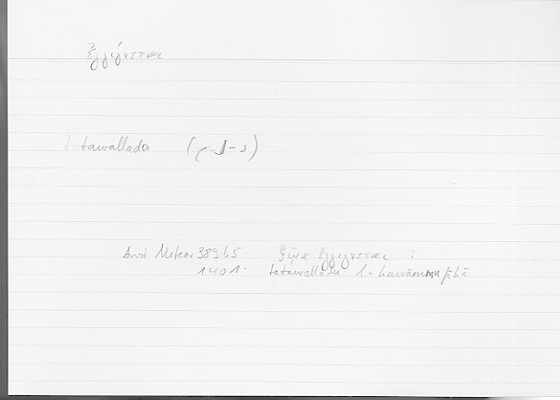 ἐγγίγνεται
tatawallada (و-ل-د)
Arist Meteor 389b5 ζῷα ἐγγίγνεται :
140 1. tatawallada l-hawāmmu fīhā